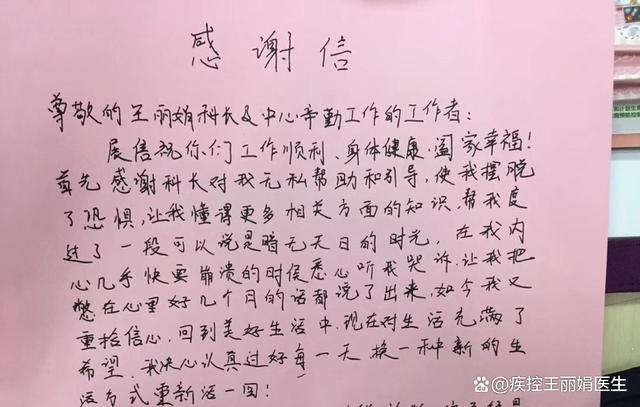 感谢信
尊敬的王丽娟科长及中心辛勤工作的工作者：
展信祝你们工作顺利、身体健康、阖家幸福！
首先感谢科长对我无私帮助和引导，使我摆脱
了恐惧，让我懂得更多相关方面的知识，帮我度
过了一段可以说是暗无天日的时光，在我内
心几乎快要崩溃的时候悉心听我哭诉，让我把
憋在心里好几个月的话都说了出来，如今我又
重拾信心，回到美好生活中，现在对生活充满了
希望，我决心认真过好每一天换一种新的生
活方式重新活一回！
@疾控王丽娟医生